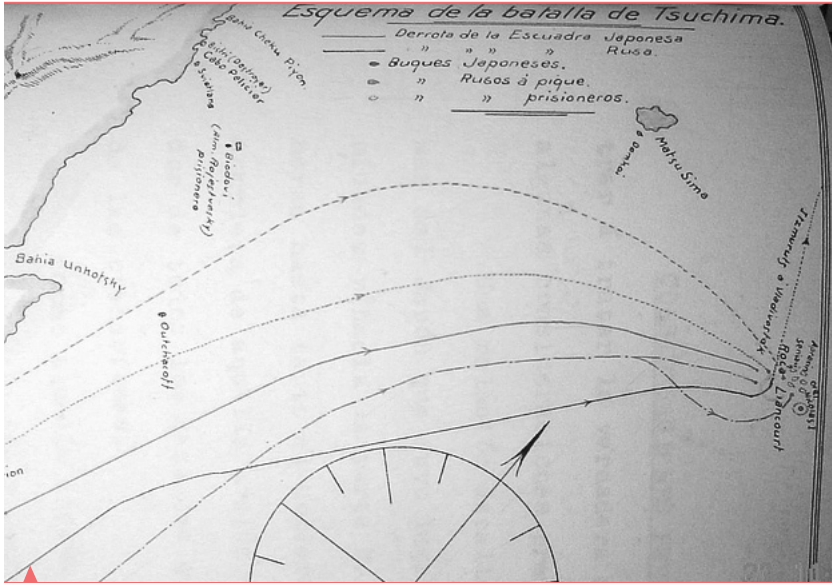 Esquema de la batalla de Tsuchima.
Derrota de la Escuadra Japonesa
" " " " Rusa.
Buques Japoneses.
" Rusos á pique.
" " prisioneros.
Bahia Cheku Piyon.
Bistri (Destroyer)
Cabo Pelicier
Suietlana
Biodovi
(Alm. Rojestvesky)
prisionero
Bahia Unkofsky
Outchacoff
Domkoi
Matsu Sima
Itzmurus a Wladivostok
Roca Liancourt
ion